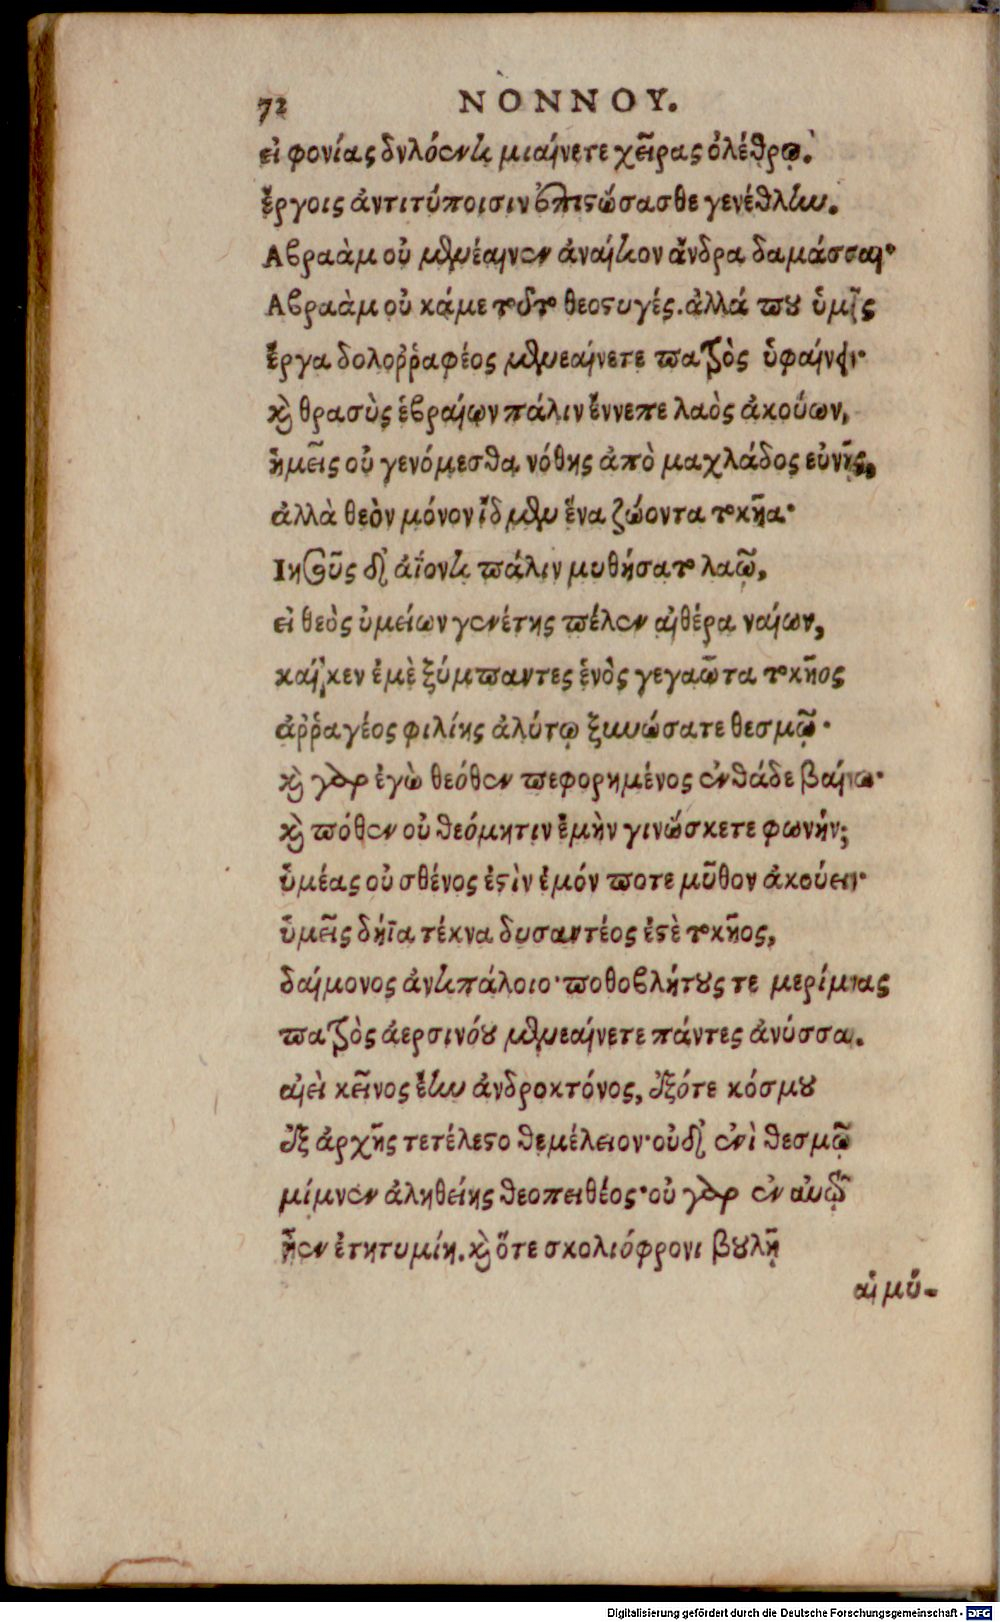 72 ΝΟΝΝΟΥ.
εἰ φονίας δηλόεντι μιαίνετε χεῖρας ὀλέθρῳ.
ἔργοις ἀντιτύποισιν ἐπιστώσασθε γενέθλην.
Αβραὰμ οὐ μενέαινεν ἀναίτιον ἄνδρα δαμάσσαι·
Αβραὰμ οὐ κάμε τοῦτο θεοστυγές. ἀλλά που ὑμῖς
ἔργα δολοῤῥαφέος μενεαίνετε πατρὸς ὑφαίνειν·
καὶ θρασὺς ἑβραίων πάλιν ἔννεπε λαὸς ἀκούων,
ἡμεῖς οὐ γενόμεσθα νόθης ἀπὸ μαχλάδος εὐνῆς,
ἀλλὰ θεὸν μόνον ἴδμεν ἕνα ζώοντα τοκῆα·
Ιησοῦς δ' ἀΐοντι πάλιν μυθήσατο λαῷ,
εἰ θεὸς ὑμείων γενέτης πέλεν αἰθέρα ναίων,
καί κεν ἐμὲ ξύμπαντες ἑνὸς γεγαῶτα τοκῆος
ἀῤῥαγέος φιλίης ἀλύτῳ ξυνώσατε θεσμῷ·
καὶ γὰρ ἐγὼ θεόθεν πεφορημένος ἐνθάδε βαίνω·
καὶ πόθεν οὐ θεόμητιν ἐμὴν γινώσκετε φωνήν;
ὑμέας οὐ σθένος ἐστὶν ἐμόν ποτε μῦθον ἀκούειν·
ὑμεῖς δήϊα τέκνα δυσαντέος ἐστὲ τοκῆος,
δαίμονος ἀντιπάλοιο· ποθοβλήτους τε μερίμνας
πατρὸς ἀερσινόου μενεαίνετε πάντες ἀνύσσαι.
αἰεὶ κεῖνος ἔην ἀνδροκτόνος, ἐξότε κόσμου
ἐξ ἀρχῆς τετέλεστο θεμέλειον· οὐδ' ἐνὶ θεσμῷ
μίμνεν ἀληθείης θεοπειθέος· οὐ γὰρ ἐν αὐτῷ
ἦεν ἐτητυμίη. καὶ ὅτε σκολιόφρονι βουλῇ
αἱμύ-
Digitalisierung gefördert durch die Deutsche Forschungsgemeinschaft - DFG